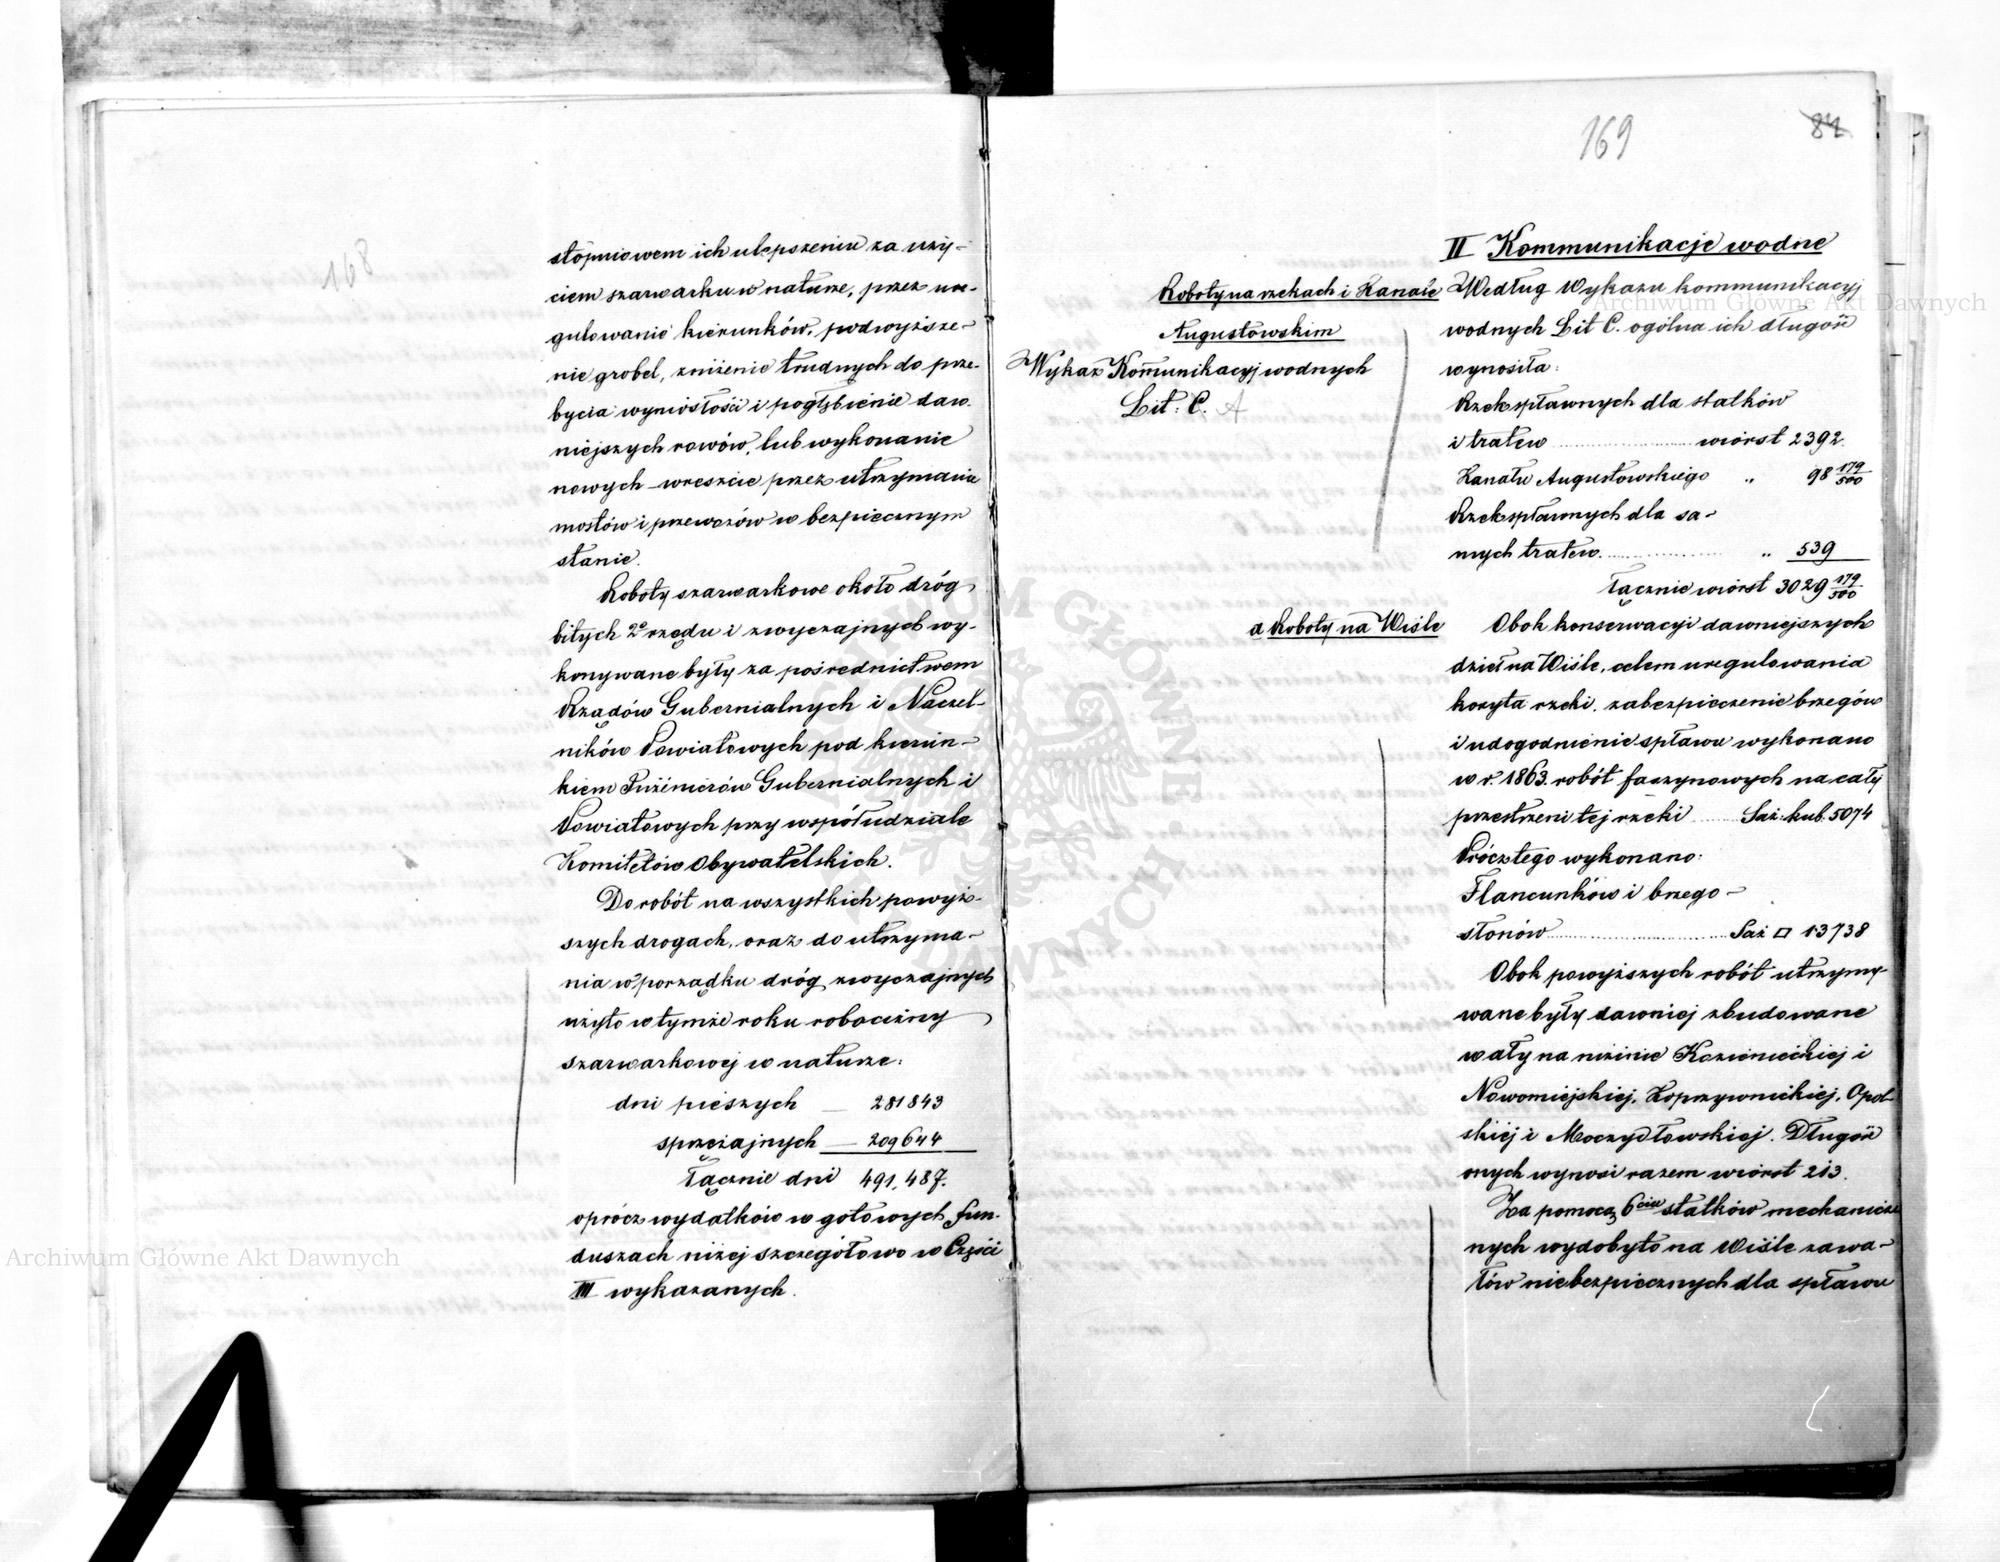 168
stopniowem ich ulepszeniu za uży-
ciem szarwarku w naturze, przez ure-
gulowanie kierunków, podwyższe-
nie grobel, zniżenie trudnych do prze-
bycia wyniosłości i pogłębienie daw-
niejszych rowów, lub wykonanie
nowych – wreszcie przez utrzymanie
mostów i przewozów w bezpiecznym
stanie.
Roboty szarwarkowe około dróg
bitych 2º rzędu i zwyczajnych wy-
konywane były za pośrednictwem
Rządów Gubernialnych i Naczel-
ników Powiatowych pod kierun-
kiem Inżenierów Gubernialnych i
Powiatowych przy współudziale
Komitetów Obywatelskich.
Do robót na wszystkich powyż-
szych drogach, oraz do utrzyma-
nia w porządku dróg zwyczajnych
użyto w tymże roku robocizny
szarwarkowej w naturze:
dni pieszych — 281843
sprzężajnych — 209644
Łącznie dni 491,487.
oprócz wydatków w gotowych fun-
duszach niżej szczegółowo w Części
III wykazanych.
169
84
II Kommunikacje wodne
Roboty na rzekach i Kanale
Augustowskim
Wykaz Kom̄unikacyj wodnych
Lit: C. A
Według Wykazu kommunikacyj
wodnych Lit C. ogólna ich długość
wynosiła:
Rzek spławnych dla statków
i tratew ........ wiorst 2392.
Kanału Augustowskiego " 98 179/500
Rzek spławnych dla sa-
mych tratew ........ " 539
Łącznie wiorst 3029 179/500
a Roboty na Wiśle
Obok konserwacyi dawniejszych
dzieł na Wiśle, celem uregulowania
koryta rzeki, zabezpieczenie brzegów
i udogodnienie spławu wykonano
w r. 1863. robót faszynowych na całej
przestrzeni tej rzeki ...... Saż. kub. 5074
Prócz tego wykonano:
Flancunków i brzego-
stonów ........ Saż □ 13738
Obok powyższych robót utrzymy-
wane były dawniej zbudowane
wały na nizinie Kozienickiej i
Nowomiejskiej, Koprzywnickiej, Opol-
skiej i Moczydłowskiej. Długość
onych wynosi razem wiorst 213.
Za pomocą 6ciu statków mechanicz-
nych wydobyto na Wiśle zawa-
łów niebezpiecznych dla spławu
Archiwum Główne Akt Dawnych
Archiwum Główne Akt Dawnych
ARCHIWUM GŁÓWNE AKT DAWNYCH